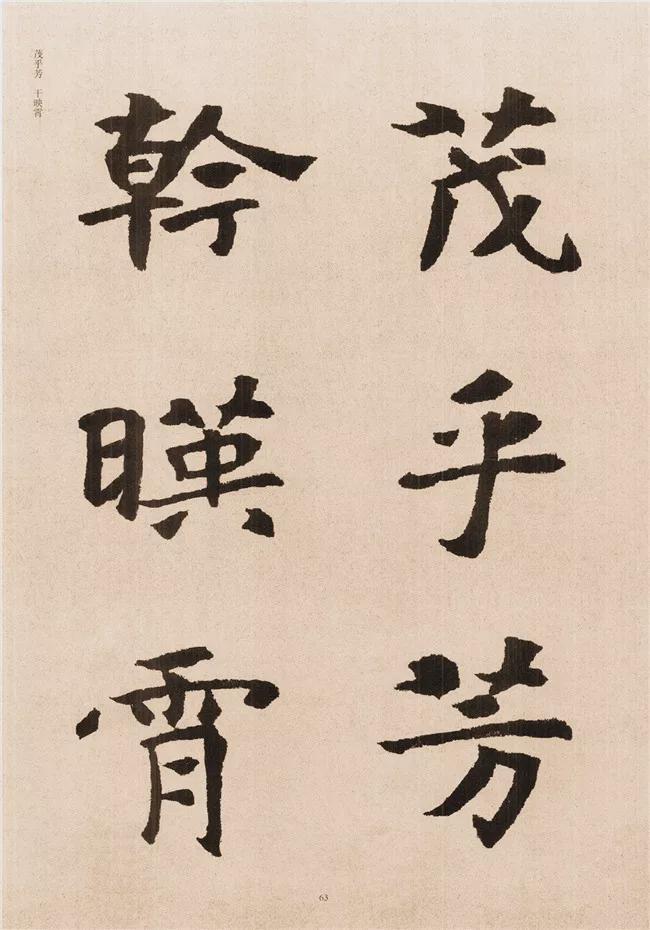 茂乎芳
幹暎霄
茂乎芳 干映霄
63